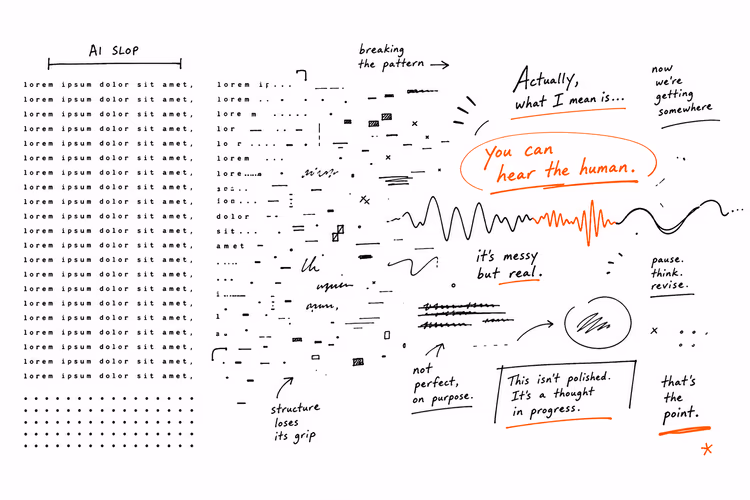 AI SLOP
lorem ipsum dolor sit amet,
lorem ipsum dolor sit amet,
lorem ipsum dolor sit amet,
lorem ipsum dolor sit amet,
lorem ipsum dolor sit amet,
lorem ipsum dolor sit amet,
lorem ipsum dolor sit amet,
lorem ipsum dolor sit amet,
lorem ipsum dolor sit amet,
lorem ipsum dolor sit amet,
lorem ipsum dolor sit amet,
lorem ipsum dolor sit amet,
lorem ipsum dolor sit amet,
lorem ipsum dolor sit amet,
lorem ipsum dolor sit amet,
lorem ipsum dolor sit amet,
lorem ipsum dolor sit amet,
lorem ipsum dolor sit amet,
lorem ipsum dolor sit amet,
lorem ipsum dolor sit amet,
lorem ipsum dolor sit amet,
lorem ip...
lorem ..
lore m
lor
lo r
lorem
lore.....
dolor
sit...
amet
breaking
the pattern →
structure
loses
its grip
Actually,
what I mean is...
now
we're
getting
somewhere
You can
hear the human.
it's messy
but real.
pause.
think.
revise.
not
perfect,
on purpose.
This isn't polished.
It's a thought
in progress.
that's
the
point.